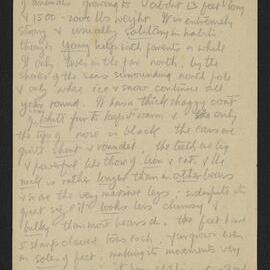 of animals growing to about 13 feet long
& 1500 - 2000 lbs weight. It is extremely
strong & usually solitary in habits
though young keep with parents a while
It only lives in the far north, by the
shores of the seas surrounding north pole
& only where ice & snow continues all
year round. It has a thick shaggy coat
of white fur to keep it warm & only
the tip of nose is black the ears are
quite short & rounded, the teeth are big
& powerful like those of lion & cats, & the
neck is rather longer than in other bears
& so are the very massive legs, so despite its
great size it looks less clumsy &
bulky than most bears do. The feet have
5 sharp clawed toes each, fur grows even
on soles of feet, making its movements very